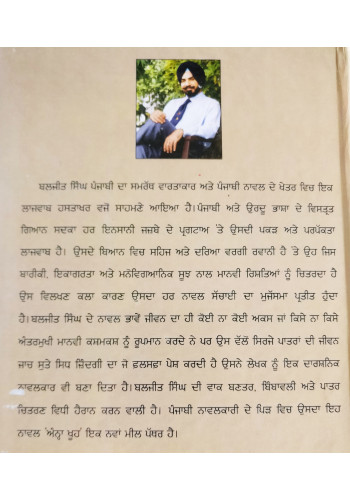 ਬਲਜੀਤ ਸਿੰਘ ਪੰਜਾਬੀ ਦਾ ਸਮਰੱਥ ਵਾਰਤਾਕਾਰ ਅਤੇ ਪੰਜਾਬੀ ਨਾਵਲ ਦੇ ਖੇਤਰ ਵਿਚ ਇਕ
ਲਾਜਵਾਬ ਹਸਤਾਖਰ ਵਜੋਂ ਸਾਹਮਣੇ ਆਇਆ ਹੈ।ਪੰਜਾਬੀ ਅਤੇ ਉਰਦੂ ਭਾਸ਼ਾ ਦੇ ਵਿਸਤ੍ਰਤ
ਗਿਆਨ ਸਦਕਾ ਹਰ ਇਨਸਾਨੀ ਜਜ਼ਬੇ ਦੇ ਪ੍ਰਗਟਾਅ 'ਤੇ ਉਸਦੀ ਪਕੜ ਅਤੇ ਪਰਪੱਕਤਾ
ਲਾਜਵਾਬ ਹੈ। ਉਸਦੇ ਬਿਆਨ ਵਿਚ ਸਹਿਜ ਅਤੇ ਦਰਿਆ ਵਰਗੀ ਰਵਾਨੀ ਹੈ 'ਤੇ ਉਹ ਜਿਸ
ਬਾਰੀਕੀ, ਇਕਾਗਰਤਾ ਅਤੇ ਮਨੋਵਿਗਆਨਿਕ ਸੂਝ ਨਾਲ ਮਾਨਵੀ ਰਿਸ਼ਤਿਆਂ ਨੂੰ ਚਿਤਰਦਾ ਹੈ
ਉਸ ਵਿਲਖਣ ਕਲਾ ਕਾਰਣ ਉਸਦਾ ਹਰ ਨਾਵਲ ਸੱਚਾਈ ਦਾ ਮੁਜੱਸਮਾ ਪ੍ਰਤੀਤ ਹੁੰਦਾ
ਹੈ।ਬਲਜੀਤ ਸਿੰਘ ਦੇ ਨਾਵਲ ਭਾਵੇਂ ਜੀਵਨ ਦਾ ਹੀ ਕੋਈ ਨਾ ਕੋਈ ਅਕਸ ਜਾਂ ਕਿਸੇ ਨਾ ਕਿਸੇ
ਅੰਤਰਮੁਖੀ ਮਾਨਵੀ ਕਸ਼ਮਕਸ਼ ਨੂੰ ਰੂਪਮਾਨ ਕਰਦੇ ਨੇ ਪਰ ਉਸ ਵੱਲੋਂ ਸਿਰਜੇ ਪਾਤਰਾਂ ਦੀ ਜੀਵਨ
ਜਾਚ ਸੁਤੇ ਸਿਧ ਜ਼ਿੰਦਗੀ ਦਾ ਜੋ ਫ਼ਲਸਫ਼ਾ ਪੇਸ਼ ਕਰਦੀ ਹੈ ਉਸਨੇ ਲੇਖਕ ਨੂੰ ਇਕ ਦਾਰਸ਼ਨਿਕ
ਨਾਵਲਕਾਰ ਵੀ ਬਣਾ ਦਿਤਾ ਹੈ।ਬਲਜੀਤ ਸਿੰਘ ਦੀ ਵਾਕ ਬਣਤਰ, ਬਿੰਬਾਵਲੀ ਅਤੇ ਪਾਤਰ
ਚਿਤਰਣ ਵਿਧੀ ਹੈਰਾਨ ਕਰਨ ਵਾਲੀ ਹੈ। ਪੰਜਾਬੀ ਨਾਵਲਕਾਰੀ ਦੇ ਪਿੜ ਵਿਚ ਉਸਦਾ ਇਹ
ਨਾਵਲ 'ਅੰਨ੍ਹਾ ਖੂਹ' ਇਕ ਨਵਾਂ ਮੀਲ ਪੱਥਰ ਹੈ।